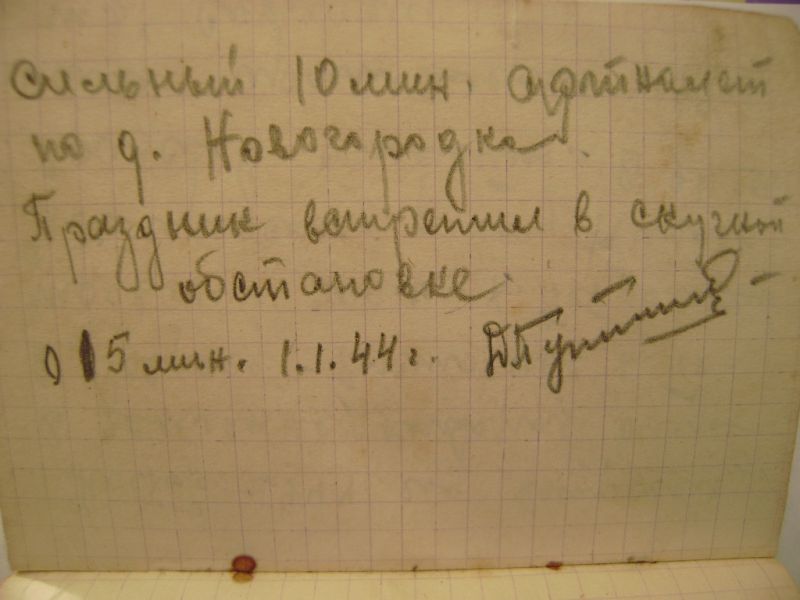 сильный 10 мин. артналет
по д. Новогородка.
Праздник встретил в скучной
обстановке.
0 15 мин. 1.1.44 г.